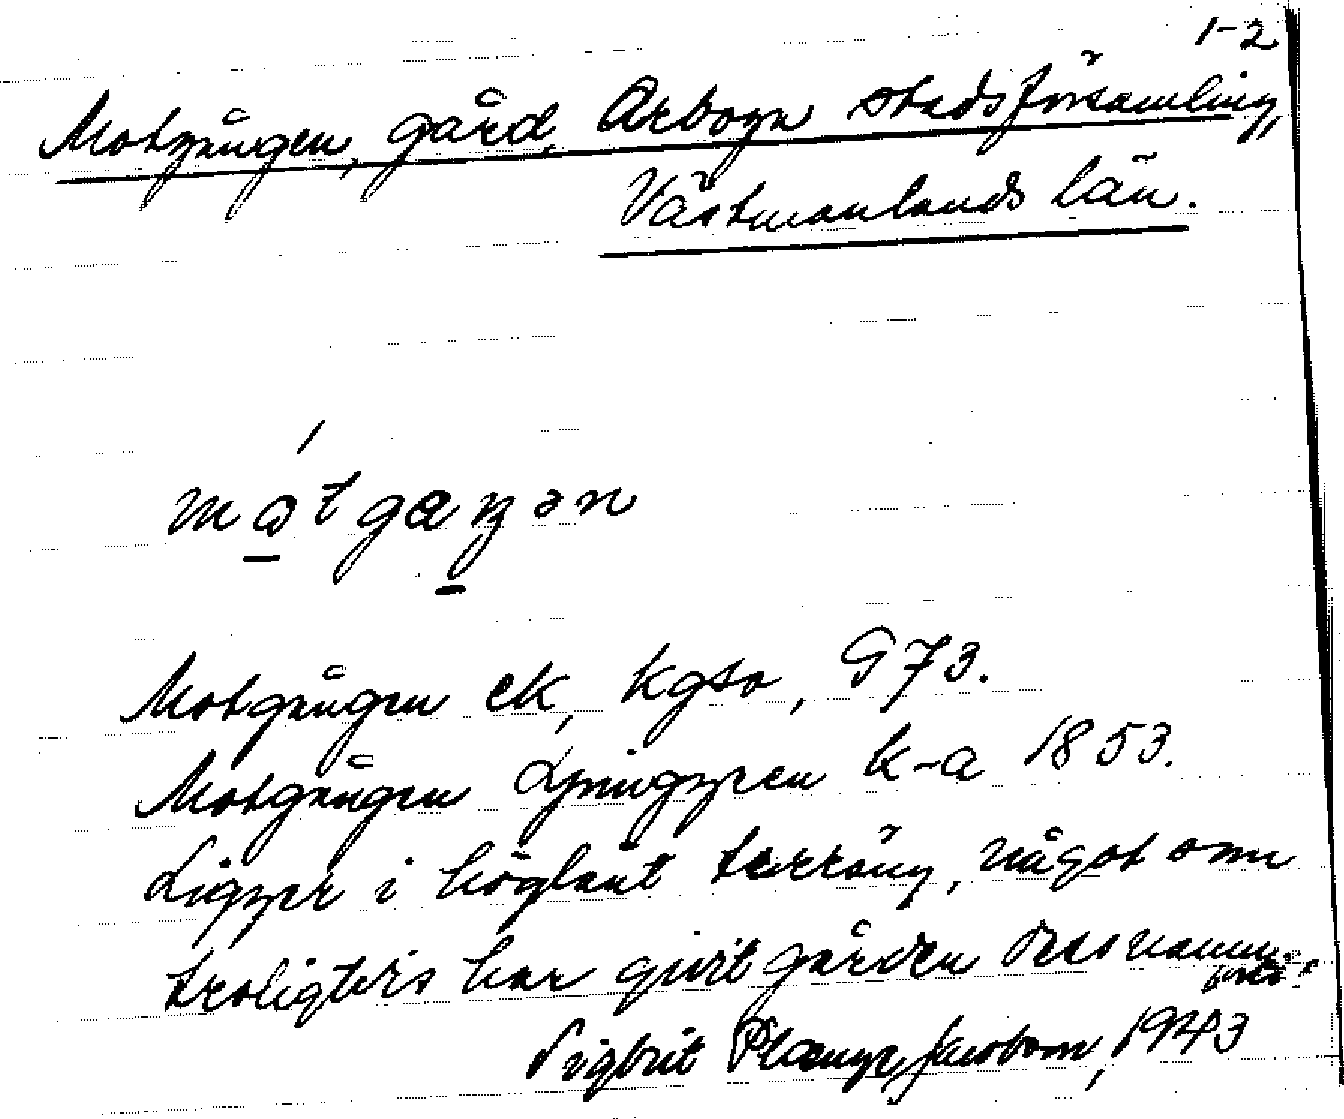 1-2
Motgången, gård, Arboga stadsförsamling,
Västmanlands län.
mo̱tgaŋ̱ən
Motgången ek, kgso, G73.
Motgången Ljunggren k-a 1853.
Ligger i höglänt terräng, något som
troligtvis har givit gården dess namn.
Sigbrit Plænge Jacobson, 1943